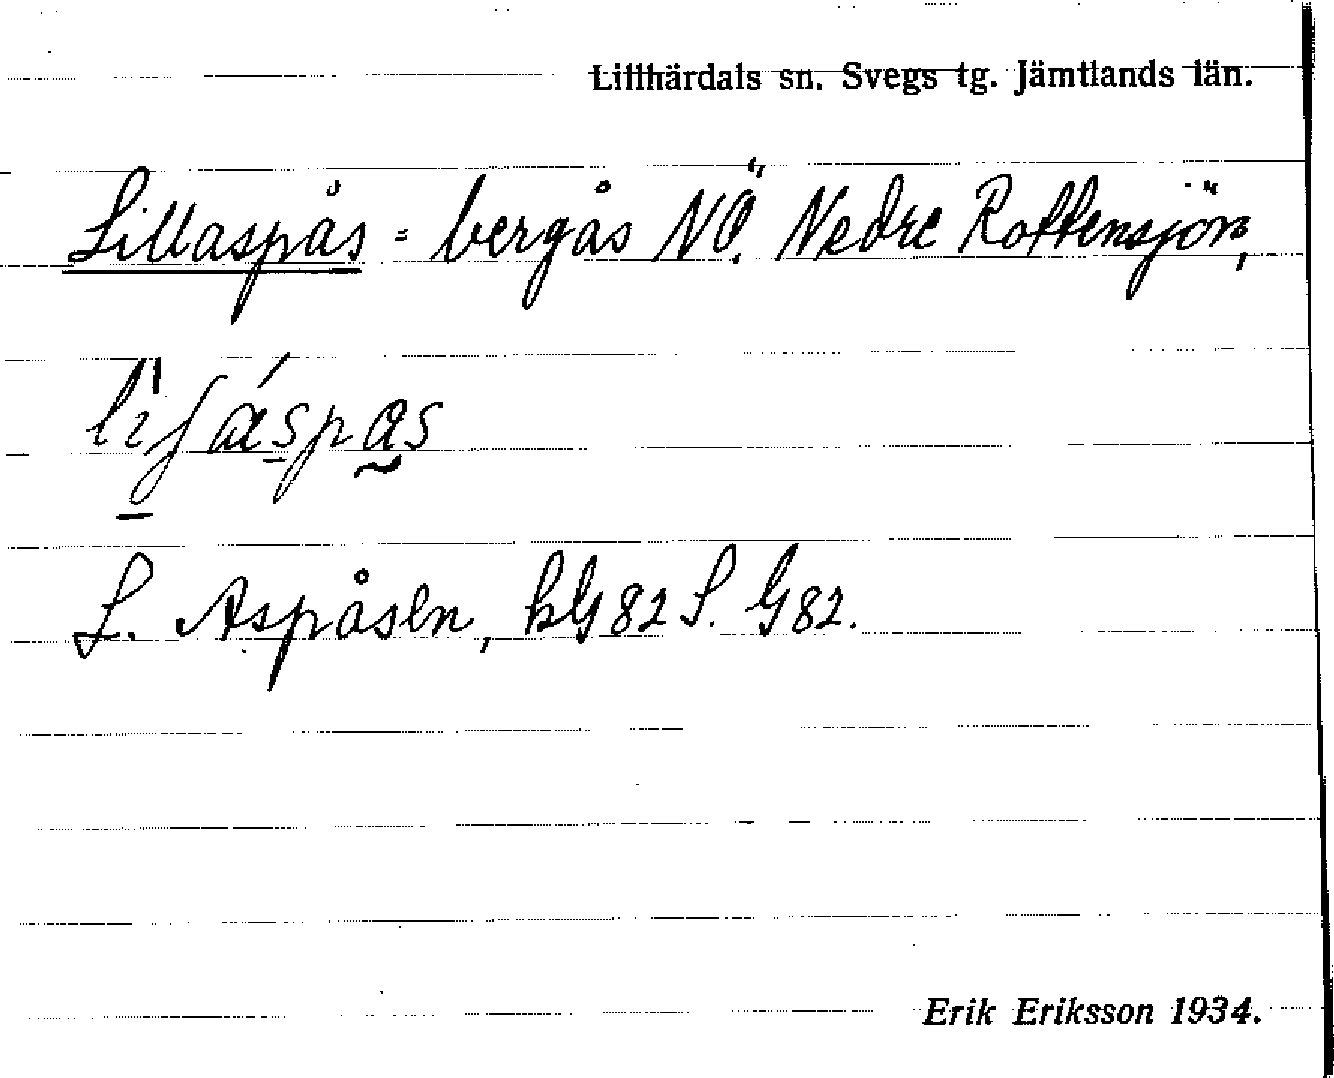 Lillhärdals sn. Svegs tg. Jämtlands län.
Lillaspås = bergås NÖ. Nedre Rottensjön,
L. Aspåsen, kG 82 S. G 82.
Erik Eriksson 1934.